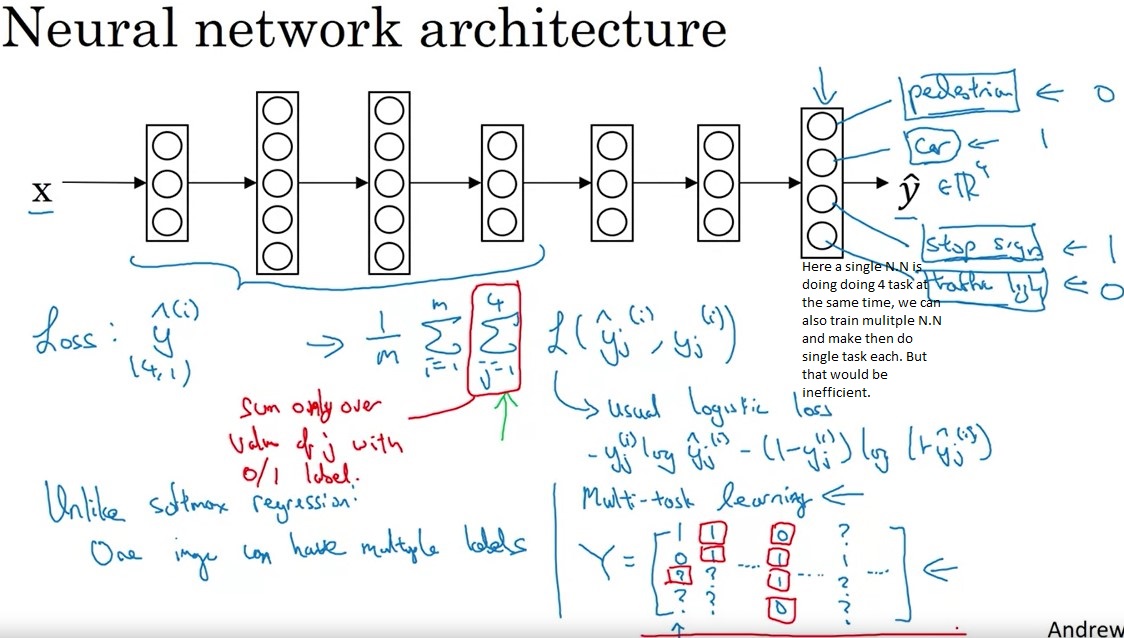 Neural network architecture
pedestrian ← 0
car ← 1
x
ŷ ∈ ℝ⁴
stop sign ← 1
traffic light ← 0
Here a single N.N is
doing doing 4 task at
the same time, we can
also train mulitple N.N
and make then do
single task each. But
that would be
inefficient.
Loss: ŷ^(i) → 1/m Σ_{i=1}^{m} Σ_{j=1}^{4} L(ŷ_j^(i), y_j^(i))
(4,1)
Sum only over
value of j with
0/1 label.
→ usual logistic loss
- y_j^(i) log ŷ_j^(i) - (1-y_j^(i)) log (1-ŷ_j^(i))
Unlike softmax regression:
One image can have multiple labels
Multi-task learning ←
1 1 0 ?
Y = 0 1 .... 1 1
? ? 1 .... ? ... ←
? ? 0 ?
Andrew